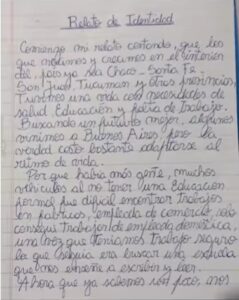 Relato de Identidad
Comienzo mi relato contando, que los
que nacimos y crecimos en el interior
del país ya sea Chaco - Santa Fe
San Juan, Tucuman y otras provincias,
Tuvimos una vida con necesidades de
salud, Educación y falta de trabajo.
Buscando un futuro mejor, algunos
vinimos a Buenos Aires pero la
verdad costo bastante adaptarse al
ritmo de vida.
Por que habia más gente, muchos
vehiculos al no tener una Educación
formal fue dificil encontrar trabajos
en fabricas, empleada de comercio, solo
consegui trabajo de empleada domestica,
una vez que teniamos trabajo seguro
lo que seguia era buscar una escuela
que nos enseñe a escribir y leer.
Ahora que ya sabemos un poco, nos